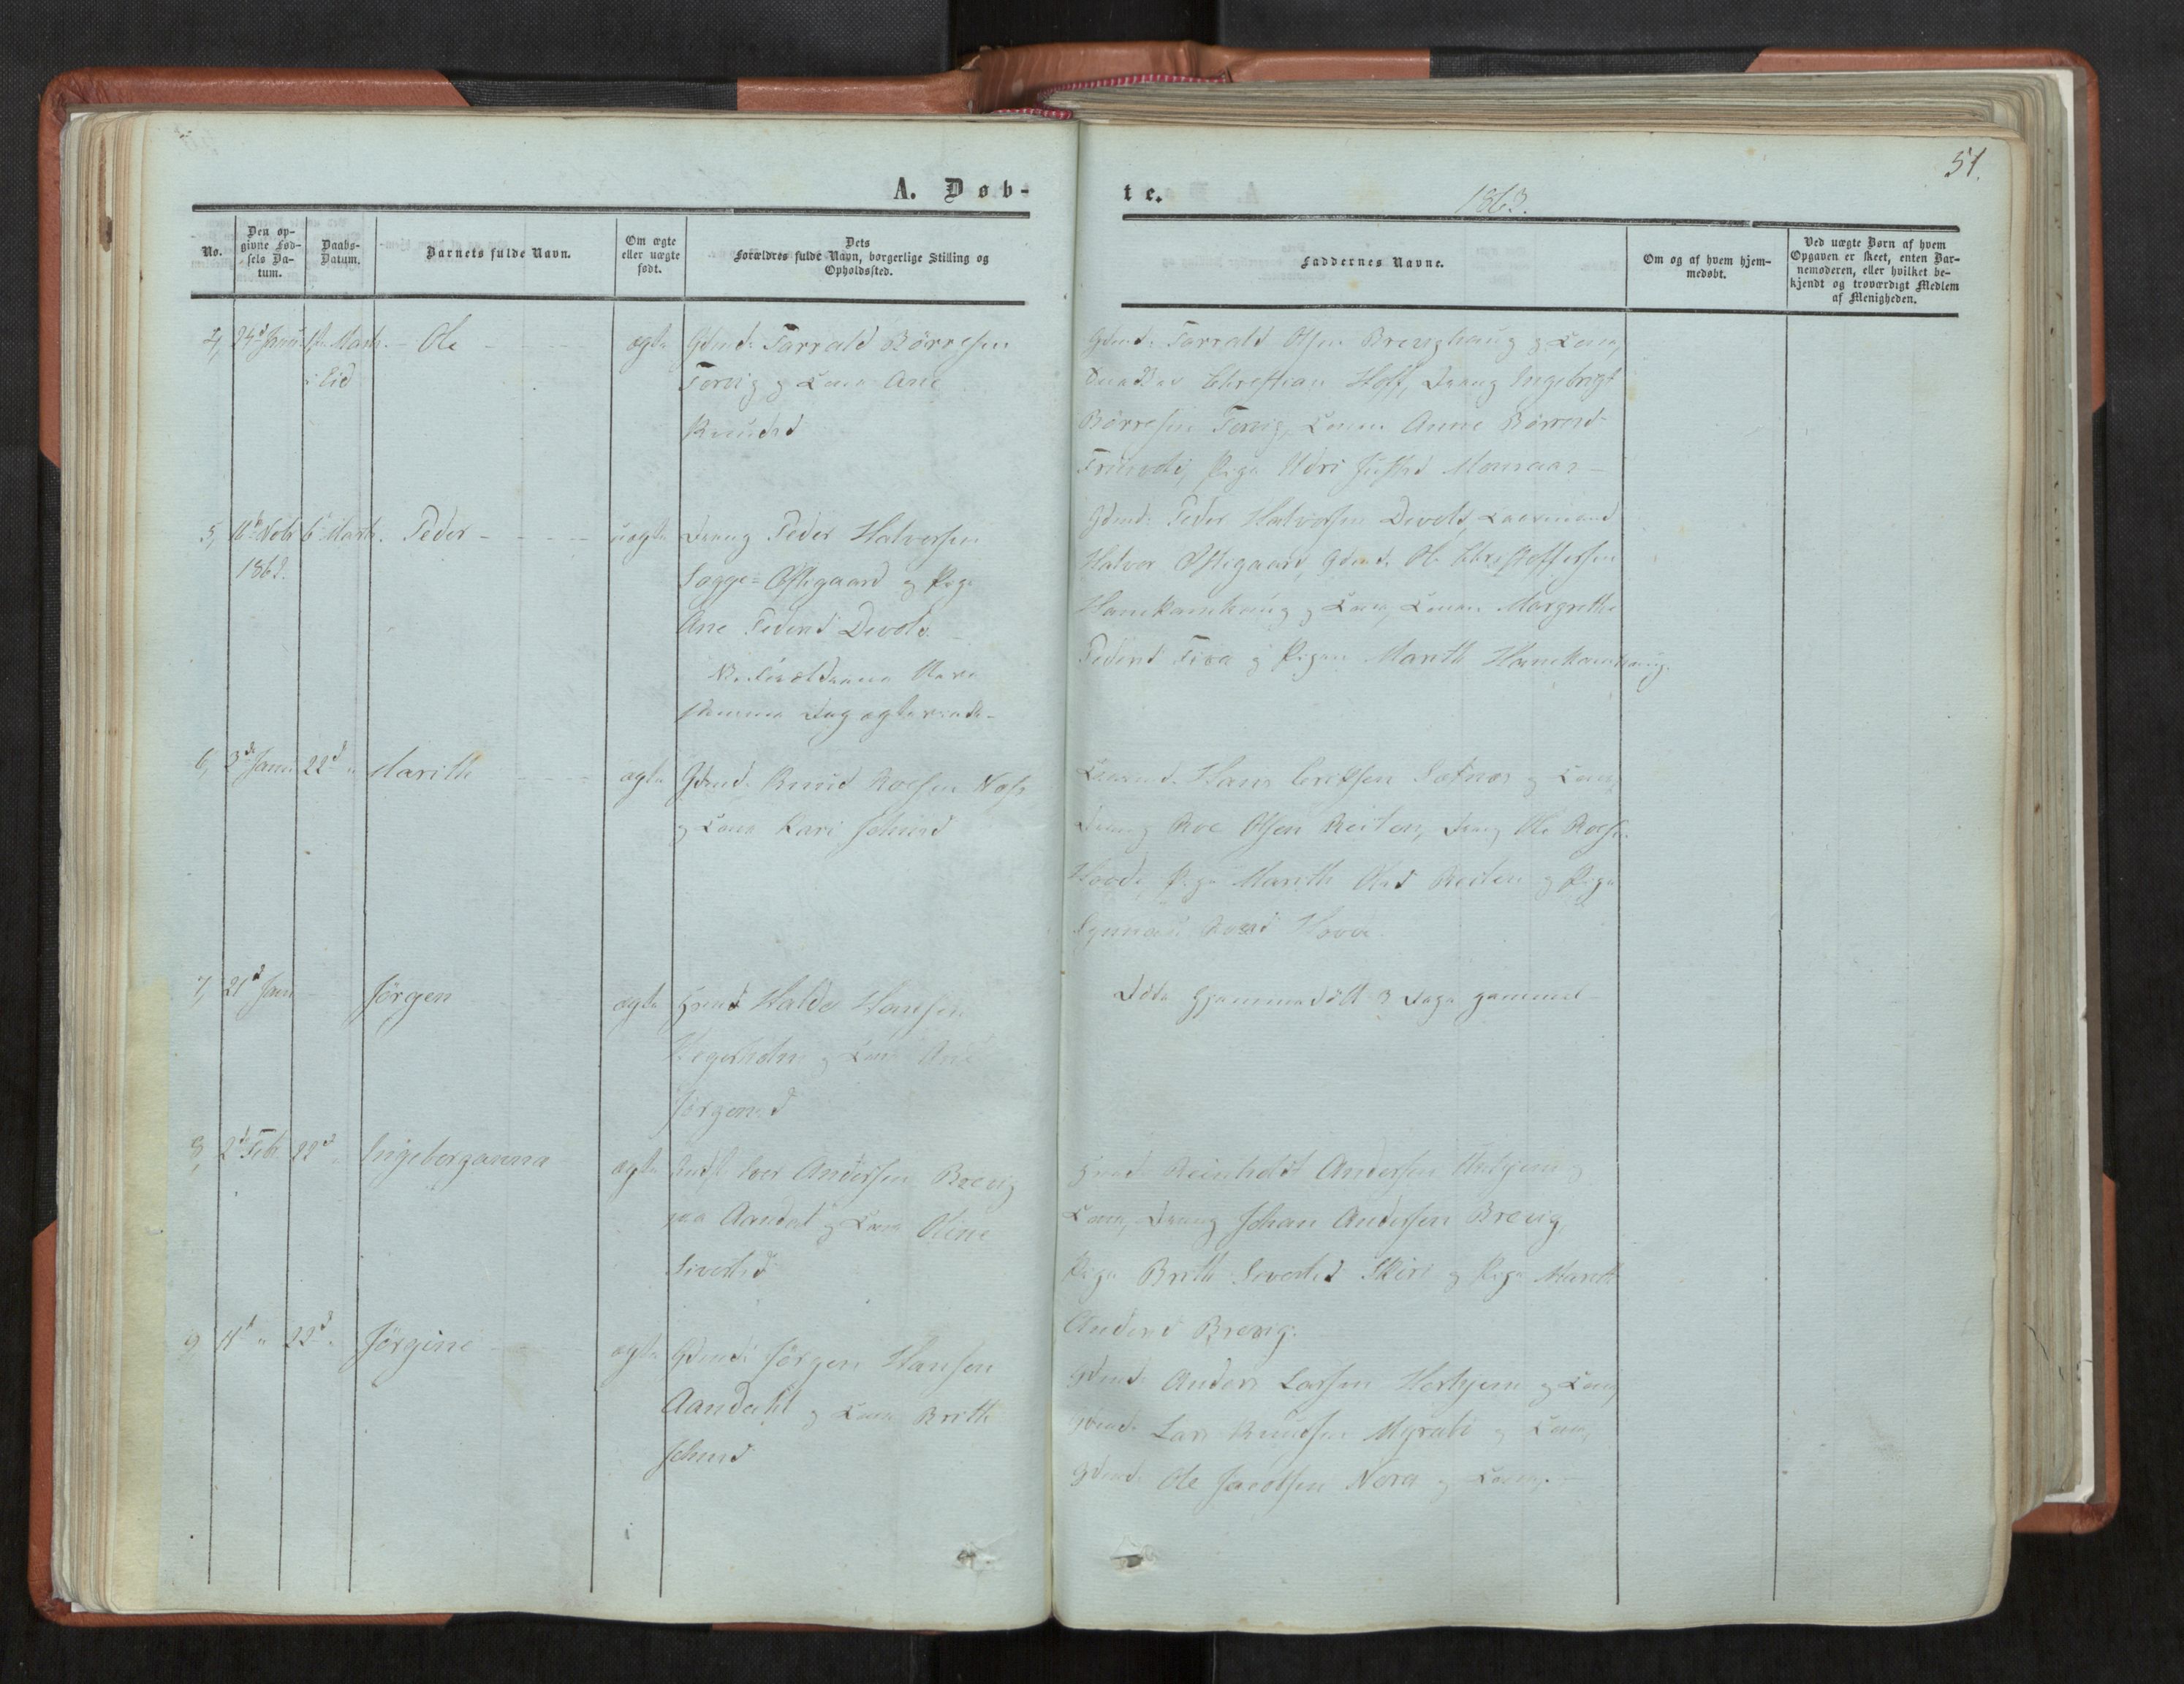 A. Døb-
te.
1863.
51.
No.
Den op-
givne Fød-
sels Da-
tum.
Daabs-
Datum.
Barnets fulde Navn.
Om ægte
eller uægte
født.
Dets
Forældres fulde Navn, borgerlige Stilling og
Opholdssted.
Faddernes Navne.
Om og af hvem hjem-
medøbt.
Ved uægte Børn af hvem
Opgaven er skeet, enten Bar-
nemoderen, eller hvilket be-
kjendt og troværdigt Medlem
af Menigheden.
4, 24d Janu 1ste Marts. Ole ægte Gdmd. Tarrald Börresen
i Eid
Torvig og Kone Ane
Knudsd
Gdmd. Tarrald Olsen Brevighaug og Kone,
Christian Hoff, Dreng Ingebrigt
Börresen Torvig, Kone Anne Börresd
Pige Justsd Monsaas
5, 16de Novbr 6te Marts. Peder uægte Dreng Peder Halvorsen
1862.
Sogge Østigaard og Pige
Ane Pedersd Devold.
NB. Forældrene
samme Dag ægteviede
Gdmd. Peder Halvorsen Devold, Kaarmand
Halvor Østigaard, Gdmd. Ole Christoffersen
Hanekamhaug og Kone, Konen Margrethe
Pedersd Fiva og Pigen Marith Hanekamhaug.
6, 3de Janu. 22d " Marith ægte Gdmd. Knud Roesen Næss
og Kone Kari Johnsd
Hans Eriksen Sætnes og Kone,
Dreng Roe Olsen Reiten, Dreng Ole Roesen
Pige Marith Olsd Reiten og Pige
Roesd Hove.
7, 21d Janu Jörgen ægte Hmd Halde Hansen
Hegerholm og Kone Ane
Jörgensd
Döde hjemmedöbt 3 Dage gammel
8, 2d Febr. 22d " Ingeborganna ægte Iver Andersen Brevig
paa Aandal og Kone Oline
Sivertsd
Hmd Reinholdt Andersen og
Kone, Dreng Johan Andersen Brevig,
Pige Brith Sivertsd Skiri og Pige Marith
Andersd Brevig.
9, 11d " 22d " Jörgine ægte Gdmd. Jörgen Hansen
Aandahl og Kone Brith
Johnsd
Gdmd. Anders Larsen Herhjem og Kone,
Gdmd. Lars Knudsen Myrabö og Kone,
Gdmd. Ole Jacobsen Nora og Kone.